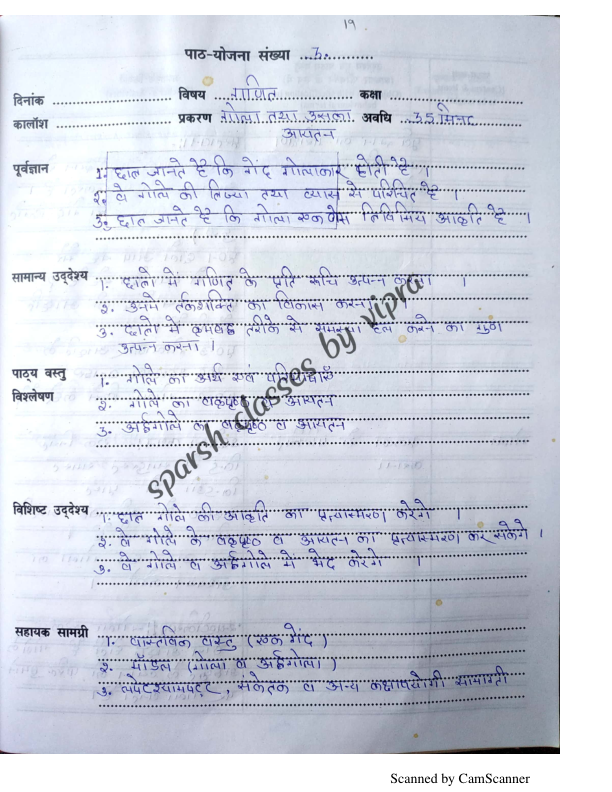 19
पाठ-योजना संख्या ...3...........
दिनांक ........................ विषय ...गणित........... कक्षा ........................
कालॉश ........................ प्रकरण गोला तथा उसका अवधि ...35 मिनट
आयतन
पूर्वज्ञान 1. छात्र जानते है कि गेंद गोलाकार होती है ।
2. वे गोले की त्रिज्या तथा व्यास से परिचित है ।
3. छात्र जानते है कि गोला एक त्रिविमिय आकृति है ।
सामान्य उद्देश्य 1. छात्रो में गणित के प्रति रूचि उत्पन्न करना ।
2. उनमे तर्कशक्ति का विकास करना ।
3. छात्रो मे क्रमबद्ध तरीके से समस्या हल करने का गुण
उत्पन्न करना ।
पाठ्य वस्तु 1. गोले का अर्थ एवं परिभाषाएँ
विश्लेषण 2. गोले का वक्रपृष्ठ व आयतन
3. अर्द्धगोले का वक्रपृष्ठ व आयतन
sparsh classes by vipra
विशिष्ट उद्देश्य 1. छात्र गोले की आकृति का प्रत्यास्मरण करेगे ।
2. वे गोले के वक्रपृष्ठ व आयतन का प्रत्यास्मरण कर सकेगे ।
3. वे गोले व अर्द्धगोले में भेद करेगे ।
सहायक सामग्री 1. वास्तविक वस्तु (एक गेंद)
2. मॉडल (गोला व अर्द्धगोला)
3. लपेटश्यामपट्ट, संकेतक व अन्य कक्षोपयोगी सामग्री
Scanned by CamScanner